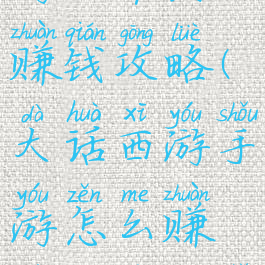 zhuàn qián gōng lüè
赚钱攻略(
dà huà xī yóu shǒu
大话西游手
yóu zěn me zhuàn
游怎么赚